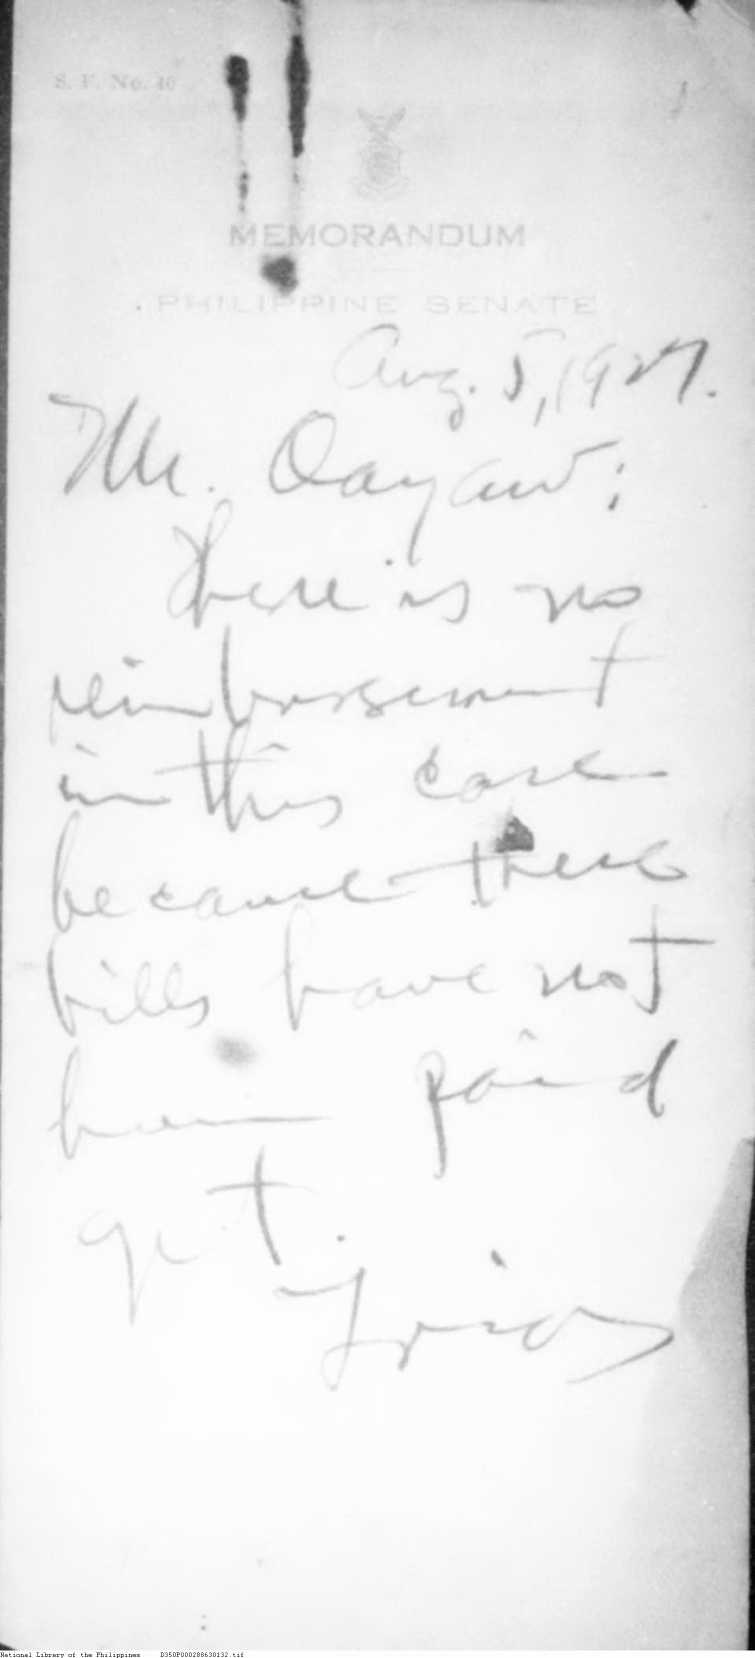 S. F. No. 40
MEMORANDUM
PHILIPPINE SENATE
Aug. 5, 1927.
Mr. Dayaw:
There is no
reimbursement
in this case
because these
bills have not
been paid
yet.
Trias
National Library of the Philippines D350P000288630132.tif